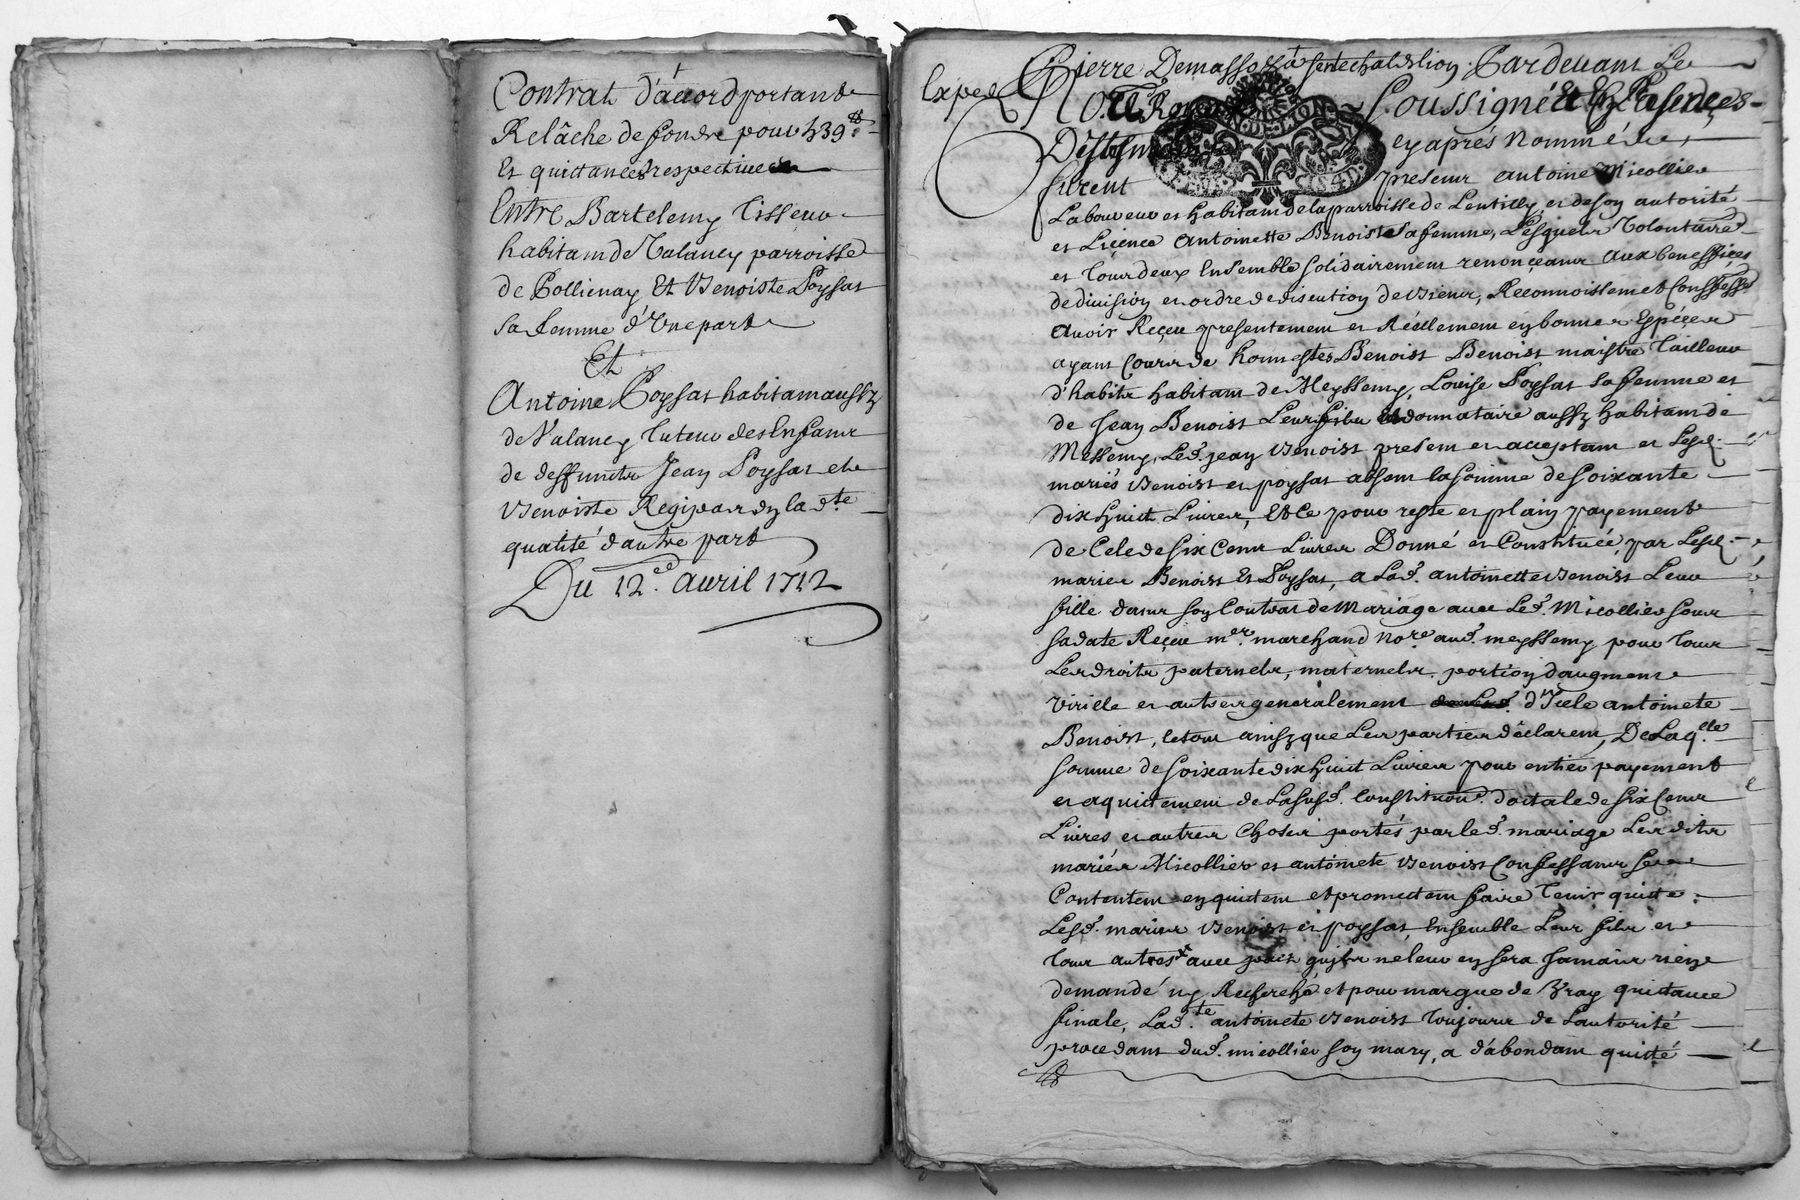 Contrat d'accord portant
Relâche de fondz pour 439lt
Et quittances respectives
Entre Bartelemy Tisseur
habitant de Valancy parroisse
de Pollienay Et Benoiste Poysat
sa femme d'Vne part
Et
Antoine Poysat habitant aussy
de Valancy Tuteur des Enfants
de deffuncts Jean Poysat et
Benoiste en la dte
qualité d'autre part
Du 12e. auril 1712
Exped
Pierre Demasso senechal de lion. Pardeuant Le
Notre Royal Soussigné Et En Presences
Des tesmoins cy aprés Nommés
furent presents antoine Micollier
Laboureur et habitant de la parroisse de Lentilly et de son autorité
et Licence Antoinette Benoist sa femme, Lesquels Volontaires
et Tous deux Ensemble solidairement renonçeants aux beneffices
de diuision et ordre de discution de biens, Reconnoissent et Confessent
auoir Reçeu presentement et Réellement en bonnes Espéces
ayant Cours de honnestes Benoist Benoist maistre Tailleur
d'habits habitant de Meyssemy, Louise Poysat sa femme et
de Jean Benoist Leur fils Et donnataire aussy habitant de
Messemy, Led. jean Benoist present et acceptant et Lesd.
mariés Benoist et poysat absents la somme de soixante
dix huict Liures, Et Ce pour reste et plain payement
de Cele de six Cents Liures Donné et Constituée par Lesd.
mariés Benoist Et Poysat, a Lad. antoinette Benoist Leur
fille dans son Contrat de Mariage auec Led. Micollier sous
sa date Reçeu mer. marchand nore. aud. meyssemy pour Tous
Les droits paternels, maternels, portion d'augment
Virille et autres generalement d'Icele antoinete
Benoist, le tout ainsy que Les parties déclarent, De Laqlle
somme de soixante dix huict Liures pour entier payement
et aquitement de La susd. Constitution. dottale de six Cents
Liures et autres Choses portés par led. mariage Les dits
mariés Micollier et antoinete Benoist Confessants se
Contentent en quictent et promettent faire Tenir quitte
Lesd. mariés Benoist et poysat, Ensemble Leur fils et
tous autres auec pact qu'jls ne leur en sera Jamais rien
demandé ny Recherché et pour marque de Vray quittance
finale, Ladte. antoinete Benoist Toujours de L'autorité
procedant dud. micollier son mary, a d'abondant quitté